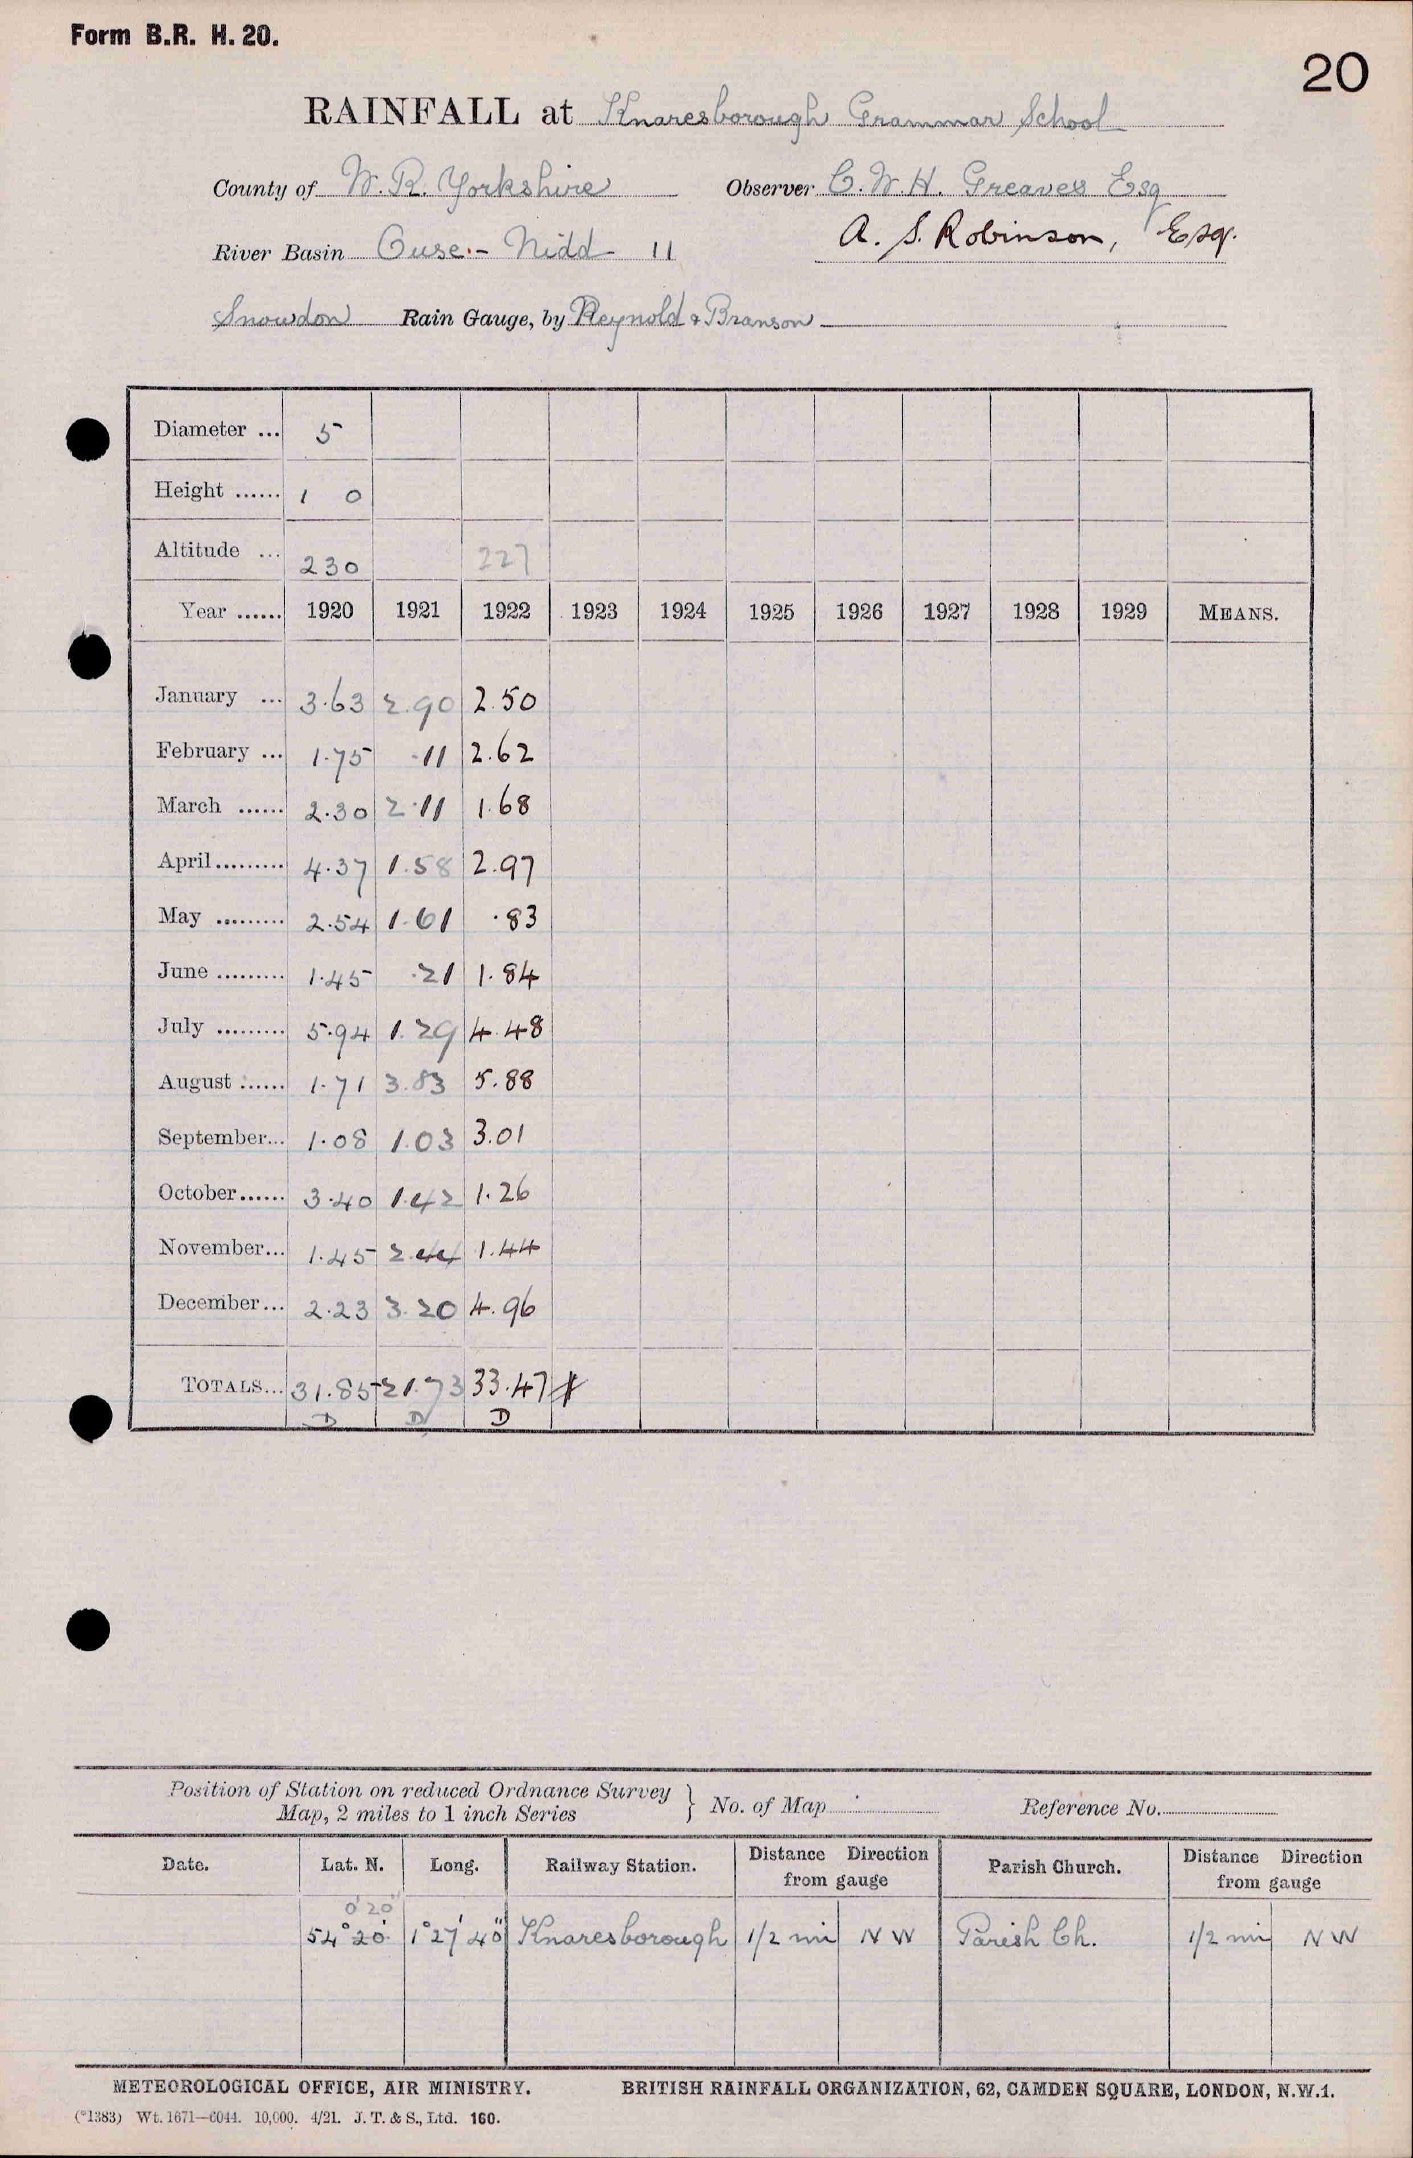 Form B.R. H. 20.
20
RAINFALL at Knaresborough Grammar School
County of W. R. Yorkshire Observer C. W. H. Greaves Esq
A. S. Robinson, Esq.
River Basin Ouse - Nidd 11
Snowdon Rain Gauge, by Reynold & Branson
Diameter ... 5
Height ...... 1 0
Altitude ... 230 227
Year ...... 1920 1921 1922 1923 1924 1925 1926 1927 1928 1929 MEANS.
January ... 3.63 2.90 2.50
February ... 1.75 .11 2.62
March ...... 2.30 2.11 1.68
April ......... 4.37 1.58 2.97
May ......... 2.54 1.61 .83
June ......... 1.45 .21 1.84
July ......... 5.94 1.29 4.48
August ...... 1.71 3.83 5.88
September... 1.08 1.03 3.01
October...... 3.40 1.42 1.26
November... 1.45 2.44 1.44
December... 2.23 3.20 4.96
TOTALS... 31.85 21.73 33.47
D D D
Position of Station on reduced Ordnance Survey
Map, 2 miles to 1 inch Series } No. of Map Reference No.
Date. Lat. N. Long. Railway Station. Distance Direction from gauge Parish Church. Distance Direction from gauge
0' 20"
54° 20' 1° 27' 40" Knaresborough 1/2 mi N W Parish Ch. 1/2 mi N W
METEOROLOGICAL OFFICE, AIR MINISTRY. BRITISH RAINFALL ORGANIZATION, 62, CAMDEN SQUARE, LONDON, N.W.1.
(*1383) Wt. 1671—6044. 10,000. 4/21. J. T. & S., Ltd. 160.